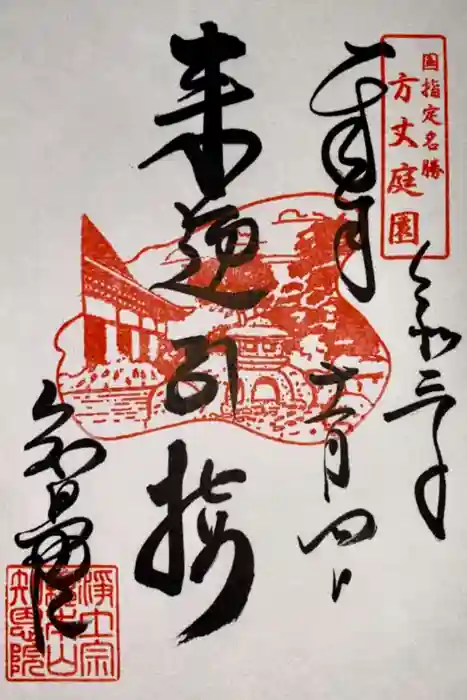 国指定名勝
方丈庭園
奉拝
令和三年
十一月四日
来迎引接
知恩院
浄土宗
総本山
知恩院